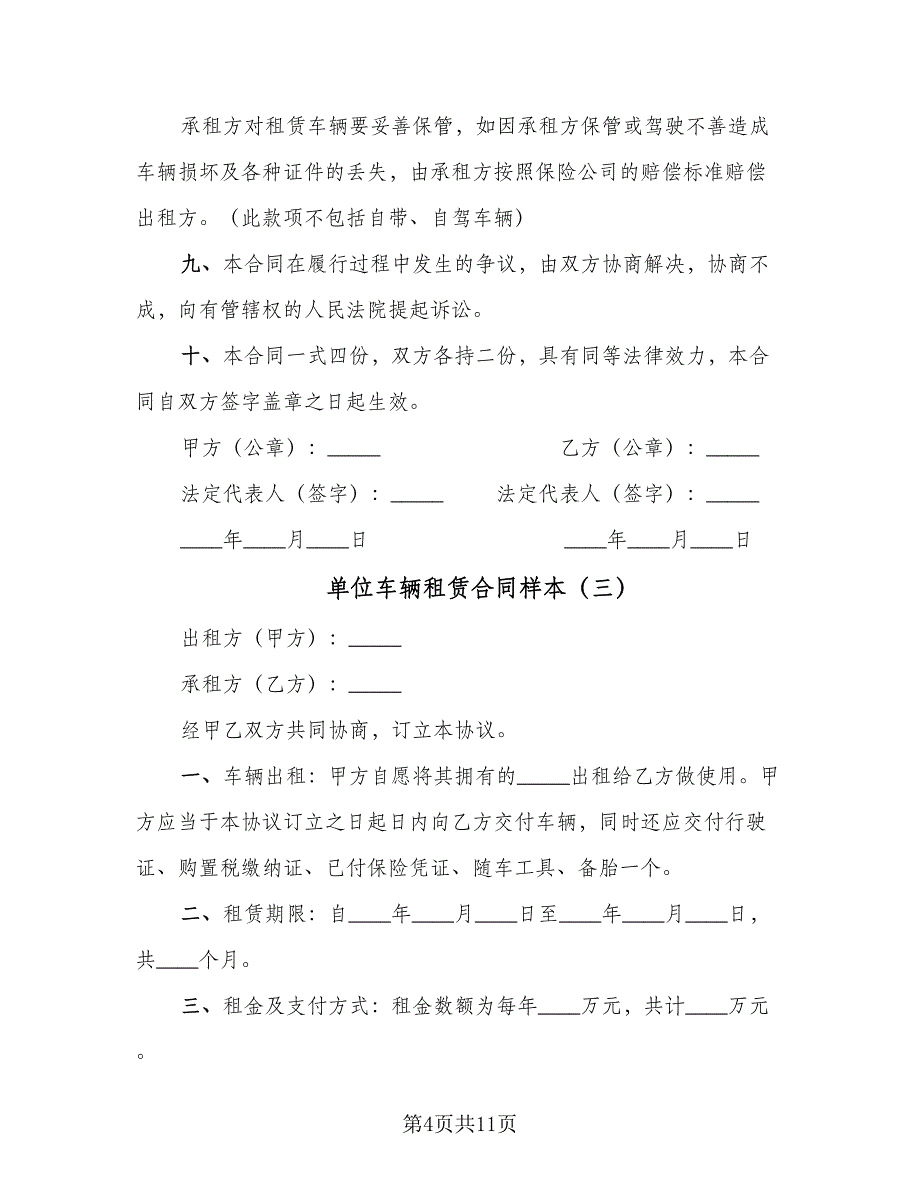 承租方对租赁车辆要妥善保管，如因承租方保管或驾驶不善造成
车辆损坏及各种证件的丢失，由承租方按照保险公司的赔偿标准赔偿
出租方。（此款项不包括自带、自驾车辆）
九、本合同在履行过程中发生的争议，由双方协商解决，协商不
成，向有管辖权的人民法院提起诉讼。
十、本合同一式四份，双方各持二份，具有同等法律效力，本合
同自双方签字盖章之日起生效。
甲方（公章）：_____ 乙方（公章）：_____
法定代表人（签字）：_____ 法定代表人（签字）：_____
____年____月____日 ____年____月____日
单位车辆租赁合同样本（三）
出租方（甲方）：_____
承租方（乙方）：_____
经甲乙双方共同协商，订立本协议。
一、车辆出租：甲方自愿将其拥有的_____出租给乙方做使用。甲
方应当于本协议订立之日起日内向乙方交付车辆，同时还应交付行驶
证、购置税缴纳证、已付保险凭证、随车工具、备胎一个。
二、租赁期限：自____年____月____日至____年____月____日，
共____个月。
三、租金及支付方式：租金数额为每年____万元，共计____万元
。
第4页共11页